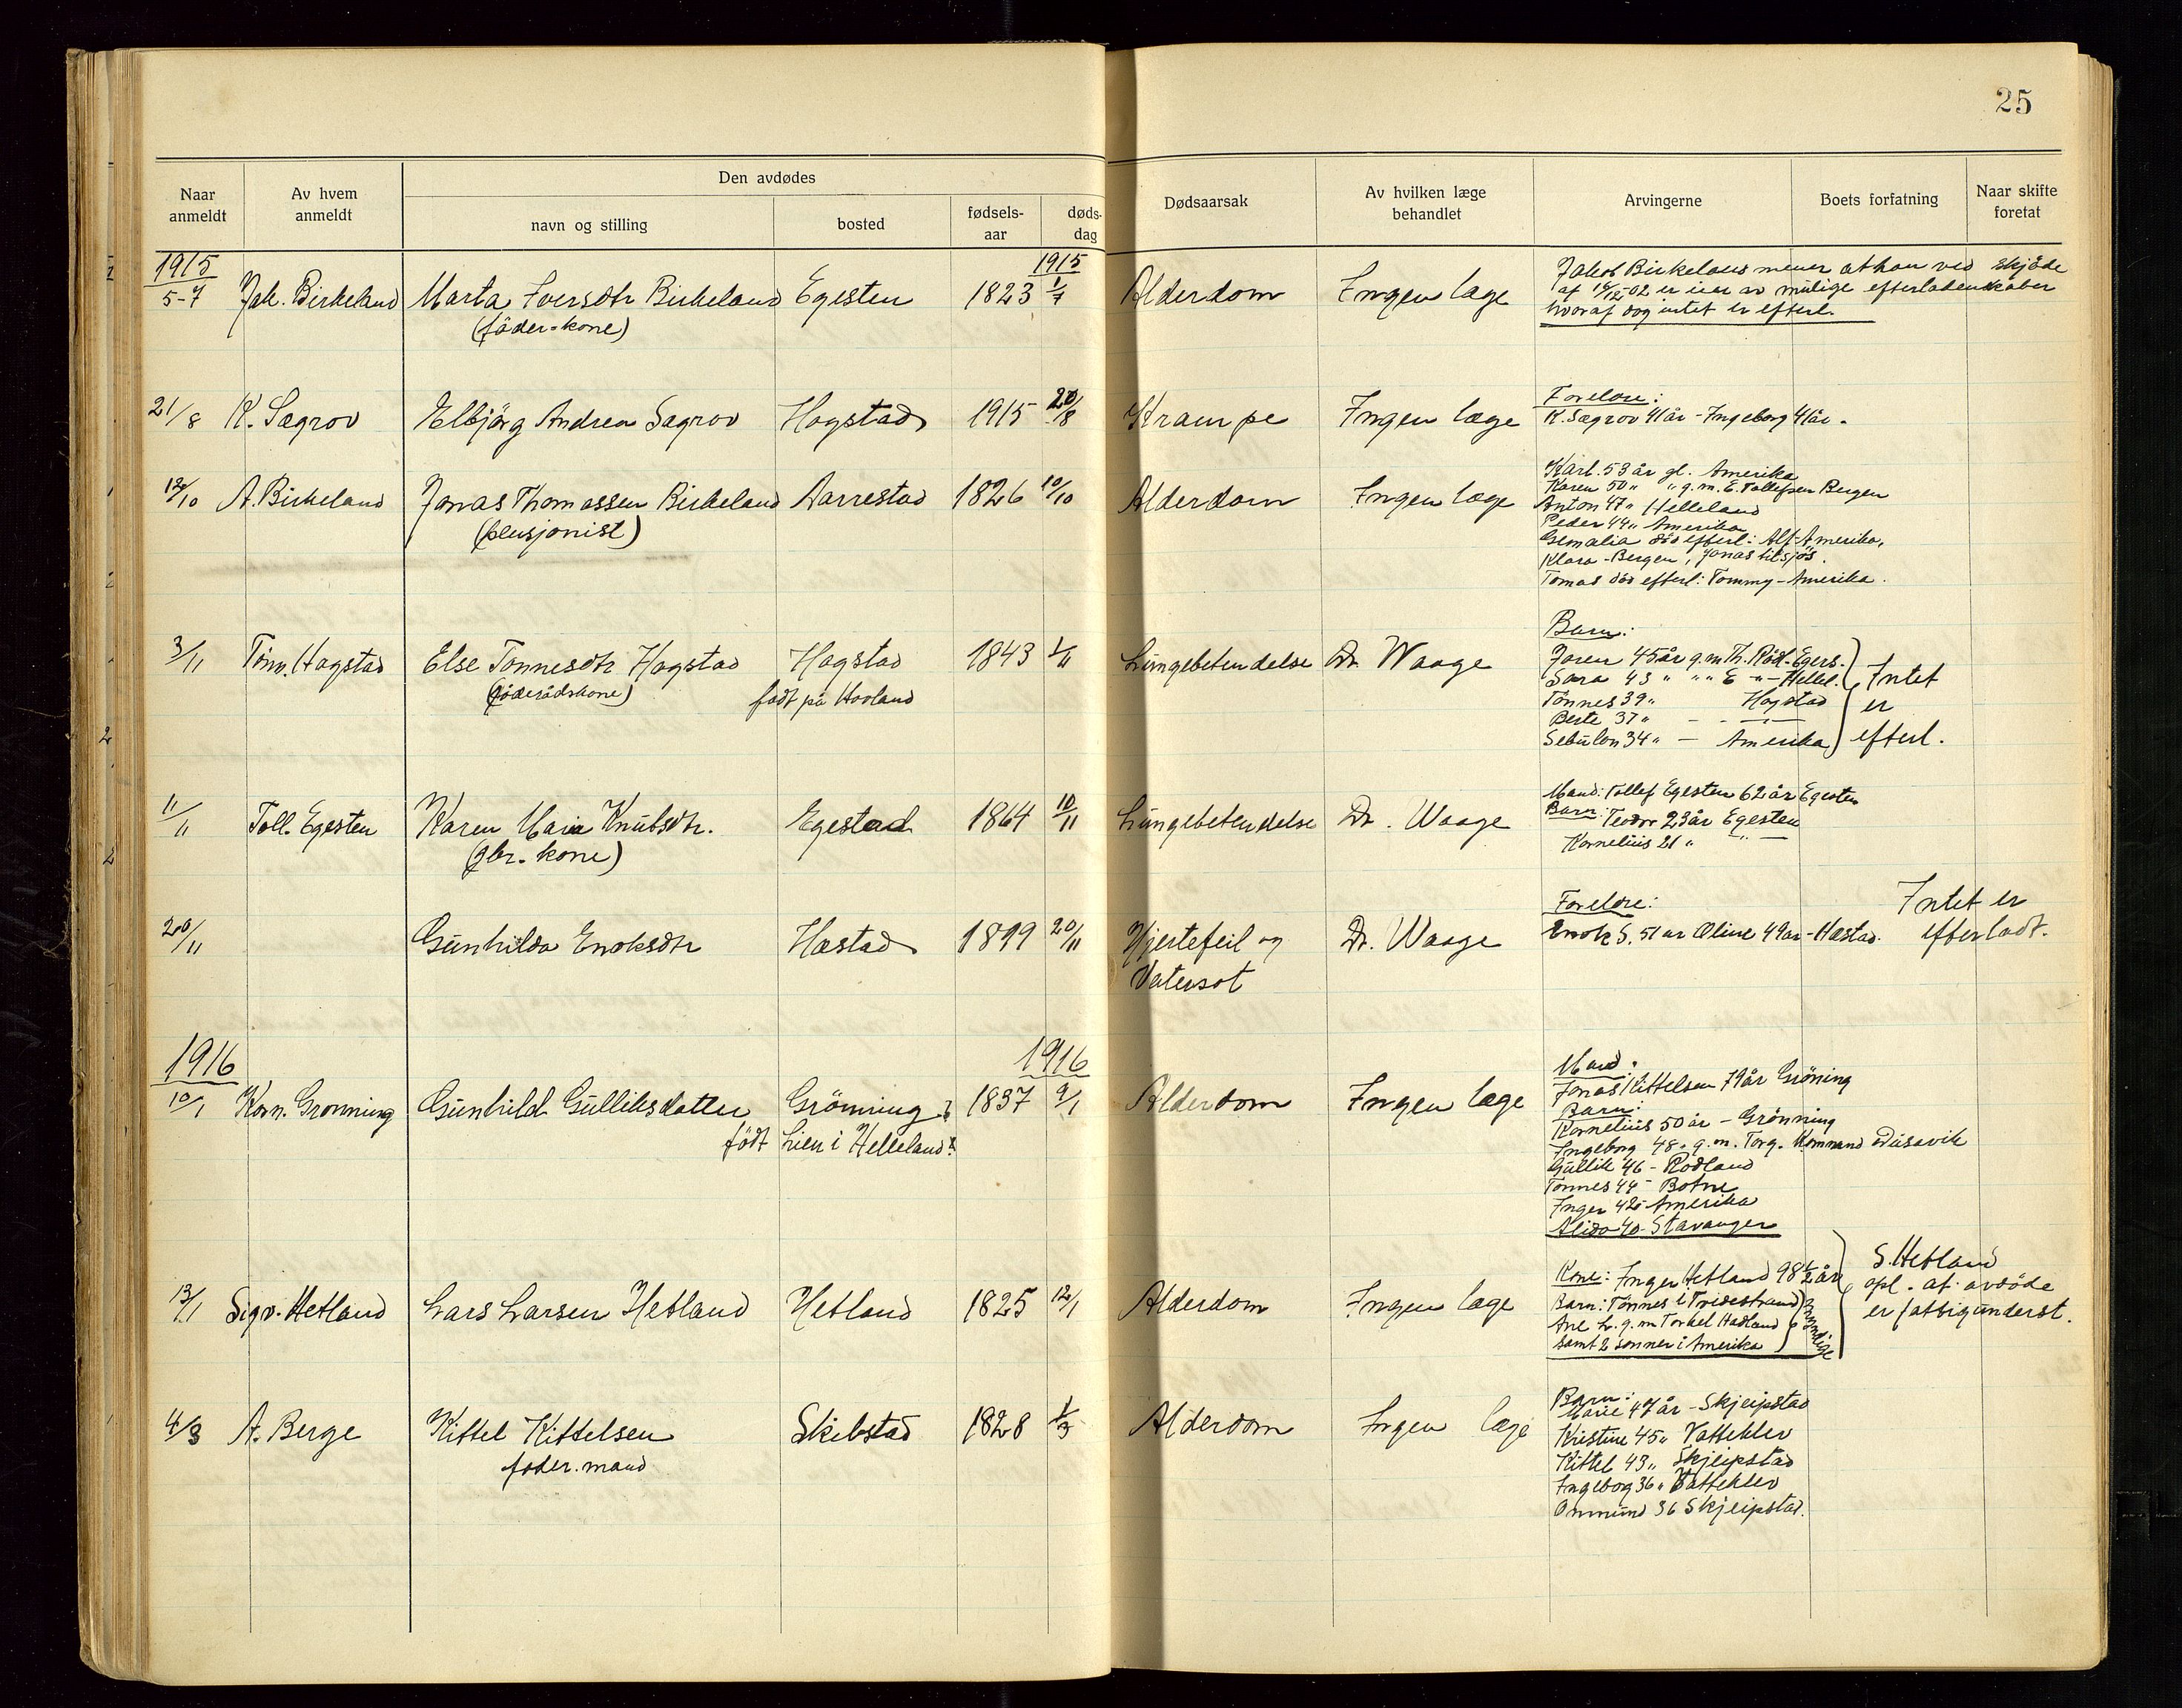 25
Naar anmeldt
Av hvem anmeldt
Den avdødes
navn og stilling
bosted
fødsels-aar
døds-dag
Dødsaarsak
Av hvilken læge behandlet
Arvingerne
Boets forfatning
Naar skifte foretat
1915 1915
5-7 Jak. Birkeland Marta Iversdtr Birkeland Egesten 1823 1/7 Alderdom Ingen læge
(föder-kone)
Jakob Birkeland mener at han ved skjöde
af 16/12-02 er eier av mulige efterladenskaber
hvoraf dog intet er efterl.
21/8 K. Sægrov Elbjörg Andrea Sægrov Hogstad 1915 20/8 Krampe Ingen læge
Foreldre:
K. Sægrov 41 år - Ingeborg 41 år.
12/10 A. Birkeland Jonas Thomassen Birkeland Aarrestad 1826 10/10 Alderdom Ingen læge
(pensjonist)
Karl. 53 år gl. Amerika
Karen 50 " " g.m. E. Tollefsen Bergen
Anton 47 " Helleland
Peder 44 " Amerika
död efterl: Alf-Amerika,
Klara - Bergen, Jonas tilsjös.
Tomas död efterl: Tommy - Amerika.
3/11 Tönn. Hogstad Else Tönnesdtr Hogstad Hogstad 1843 1/11 Lungebetendelse Dr. Waage
(föderådskone) födt på Hovland
Barn:
Joren 45 år g.m Th. Röd - Egers.
Sara 43 " " " E " - Hellel.
Tönnes 39 " Hogstad
Berte 37 " - - -"-
Sebulon 34 " - Amerika
Intet
er
efterl.
11/11 Toll. Egesten Karen Maria Knutsdtr. Egestad 1864 10/11 Lungebetendelse Dr. Waage
(gbr. kone)
Mand: Tollef Egesten 62 år Egesten
Barn: Teodor 23 år Egesten
Kornelius 21 " -"-
20/11 Gunhilda Enoksdtr Hæstad 1899 20/11 Hjertefeil og Dr. Waage
Vatersot
Foreldre:
Enok S. 51 år Oline 49 år - Hæstad.
Intet er
efterladt.
1916 1916
10/1 Korn. Grönning Gunhild Gulliksdatter Grönning 1837 9/1 Alderdom Ingen læge
födt Lien i Helleland?
Mand:
Jonas Kittelsen 79 år Gröning
Barn:
Kornelius 50 år - Grönning
Ingeborg 48 " g.m. Torg. Kommand Dusavik
Gullik 46 - Rodland
Tönnes 44 - Botne
Inger 42 - Amerika
Alida 40 - Stavanger
13/1 Sigv. Hetland Lars Larsen Hetland Hetland 1825 12/1 Alderdom Ingen læge
Kone: Inger Hetland 98 1/2 år
Barn: Tönnes i Tvedestrand
Ane L. g.m Torkel Hadland
Samt 2 sönner i Amerika
myndige
S. Hetland
opl. at avdöde
er fattigunderst.
4/3 A. Berge Kittel Kittelsen Skibstad 1828 1/3 Alderdom Ingen læge
foder. mand
Barn:
Marie 47 år - Skjeipstad
Kristine 45 " Vatteklev
Kittel 43 " Skjeipstad
Ingeborg 36 " Vatteklev
Ommund 36 Skjeipstad.